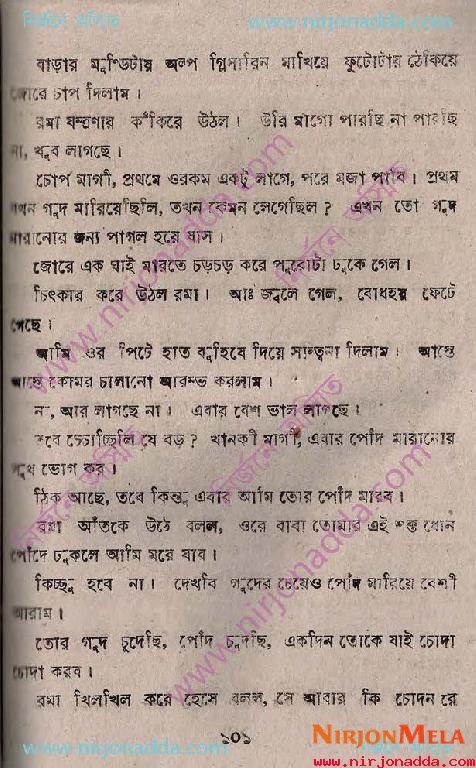 নির্জনে অসিত
www.nirjonadda.com
বাড়ার মুণ্ডিটায় অল্প গ্লিসারিন মাখিয়ে ফুটোটার ঠেকিয়ে
জোরে চাপ দিলাম।
রমা যন্ত্রণার কঁকিরে উঠল। উরি মাগো পারছি না পারছি
না, খুব লাগছে।
চোপ মাগী, প্রথমে ওরকম একটু লাগে, পরে মজা পাবি। প্রথম
যখন গুদ মারিয়েছিলি, তখন কেমন লেগেছিল? এখন তো গুদ
মারানোর জন্য পাগল হয়ে যাস।
জোরে এক ঘাই মারতে চড়চড় করে পুরোটা ঢুকে গেল।
চিৎকার করে উঠল রমা। আঃ জ্বলে গেল, বোধহয় ফেটে
গেছে।
আমি ওর পিটে হাত বুলিয়ে দিয়ে সান্ত্বনা দিলাম। আস্তে
আস্তে কোমর চালানো আরম্ভ করলাম।
না, আর লাগছে না। এবার বেশ ভাল লাগছে।
তবে চেঁচাচ্ছিলি যে বড়? খানকী মাগী, এবার পোঁদ মারানোর
সুখ ভোগ কর।
ঠিক আছে, তবে কিন্তু এবার আমি তোর পোঁদ মারব।
রমা আঁতকে উঠে বলল, ওরে বাবা তোমার এই শক্ত ধোন
পোঁদে ঢুকলে আমি মরে যাব।
কিচ্ছু হবে না। দেখবি গুদের চেয়েও পোঁদ মারিয়ে বেশী
আরাম।
তোর গুদ চুদেছি, পোঁদ চুদছি, একদিন তোকে যাই চোদা
চোদা করব।
রমা খিলখিল করে হেসে বলল, সে আবার কি চোদন রে
১০১
NIRJONMELA
www.nirjonadda.com
www.nirjonadda.com